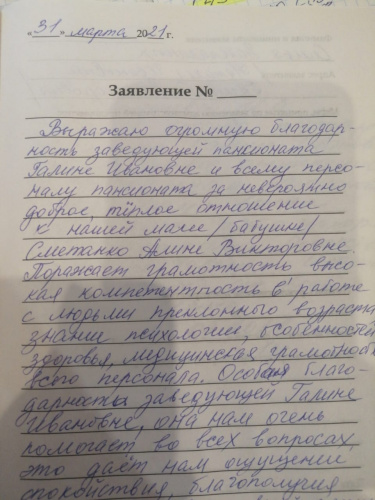 «31» марта 2021 г.
Заявление № ____
Выражаю огромную благодар-
ность заведующей пансионата
Галине Ивановне и всему персо-
налу пансионата за невероятно
доброе, тёплое отношение
к нашей маме/бабушке/
Сметанко Алине Викторовне.
Поражает грамотность, высо-
кая компетентность в работе
с людьми преклонного возраста,
знании психологии, особенностей
здоровья, медицинская грамотность
всего персонала. Особая благо-
дарность заведующей Галине
Ивановне, она нам очень
помогает во всех вопросах,
это даёт нам ощущение
спокойствия, благополучия